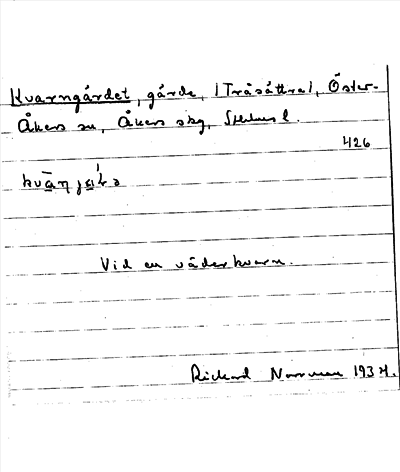 Kvarngärdet, gärde, (Träsättra), Öster-
Åkers sn, Åkers skg, Sthlms l.
426
Vid en väderkvarn.
Rickard Norrman 1934.